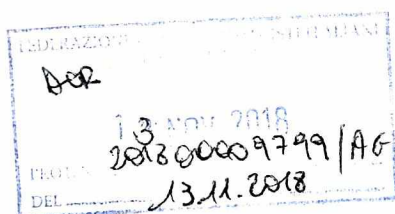 FEDERAZIONE ITALIANI
AOR
13 NOV 2018
PROT. 201800009799/AG
DEL 13.11.2018